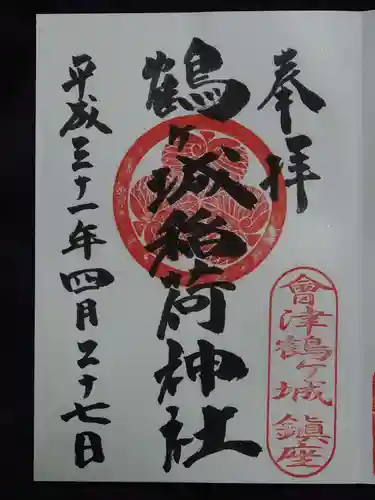 奉拝
會津鶴ヶ城鎮座
鶴ヶ城稲荷神社
平成三十一年四月二十七日